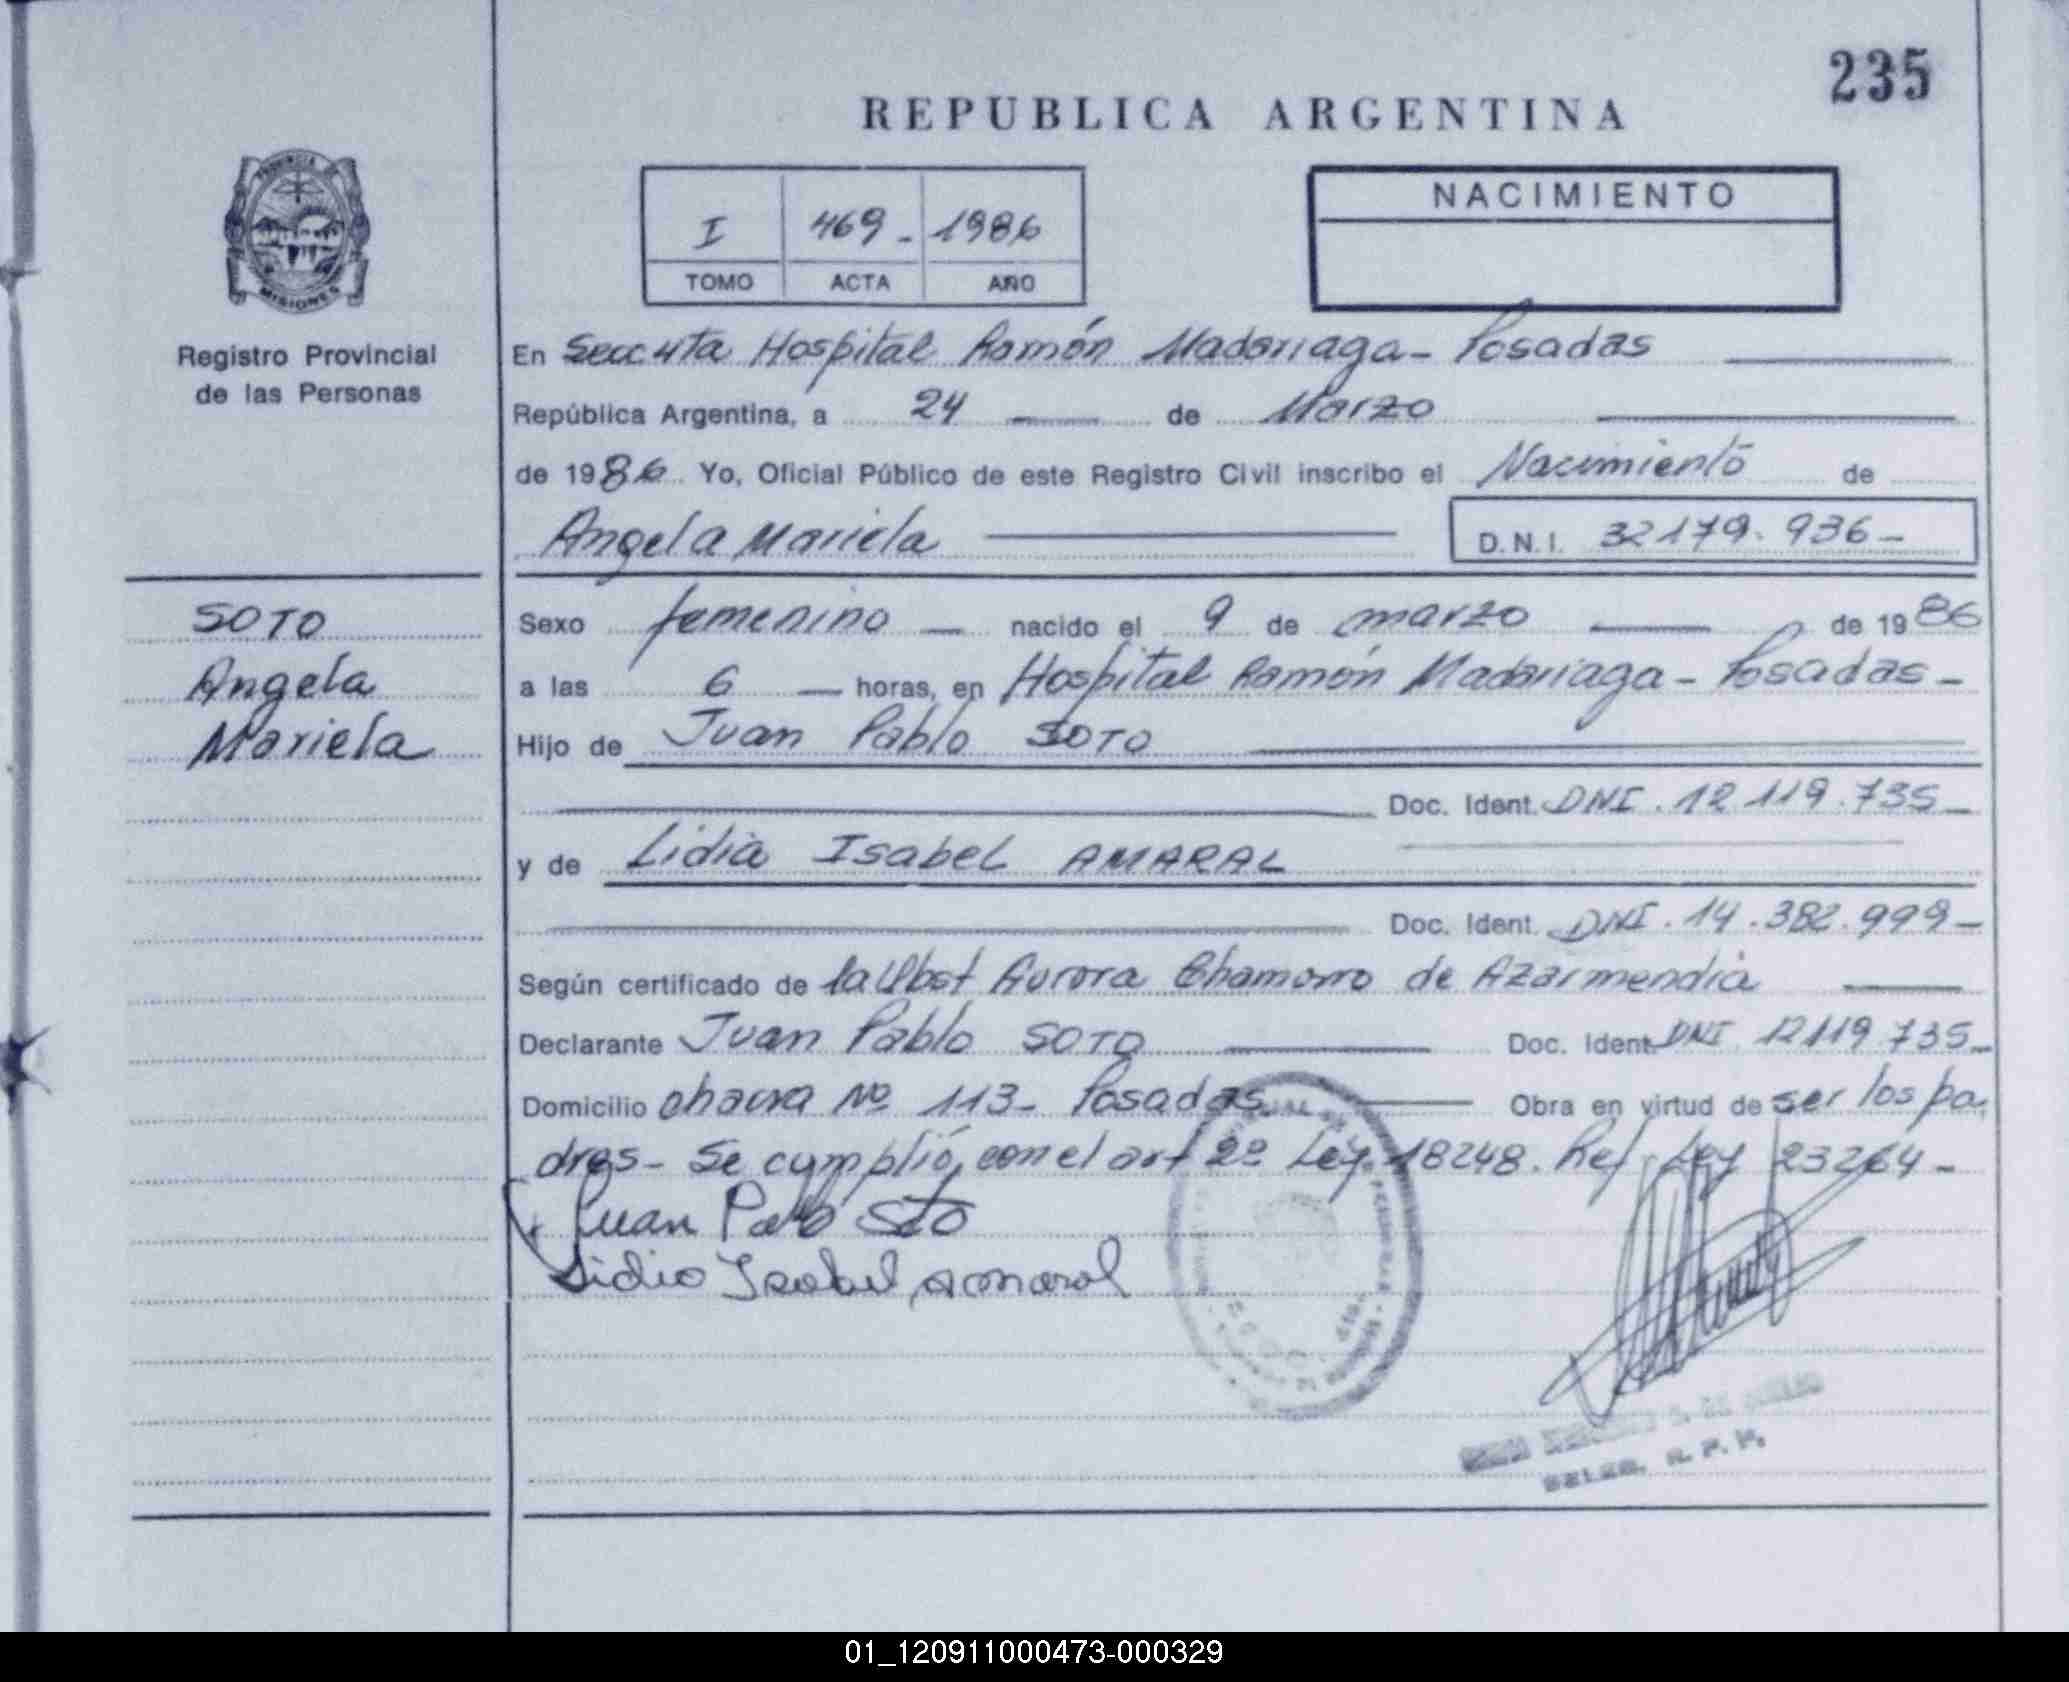 235
REPUBLICA ARGENTINA
PROVINCIA
MISIONES
Registro Provincial
de las Personas
I 469- 1986
TOMO ACTA AÑO
NACIMIENTO
En Secc 4ta Hospital Ramón Madariaga - Posadas
República Argentina, a 24 de Marzo
de 1986 Yo, Oficial Público de este Registro Civil inscribo el Nacimiento de
Angela Mariela D.N.I. 32179.936-
SOTO
Angela
Mariela
Sexo femenino nacido el 9 de marzo de 1986
a las 6 horas, en Hospital Ramón Madariaga - Posadas -
Hijo de Juan Pablo SOTO
Doc. Ident. DNI. 12.119.735-
y de Lidia Isabel AMARAL
Doc. Ident. DNI. 14.382.999-
Según certificado de la Obst Aurora Chamorro de Azarmendia
Declarante Juan Pablo SOTO Doc. Ident. DNI 12119735-
Domicilio Nº 113- Posadas Obra en virtud de ser los pa
dres - Se cumplió con el art 2º Ley 18248. Ref. Ley 23264-
Juan Pablo Soto
Lidia Isabel Amaral
R. P. P.
01_120911000473-000329